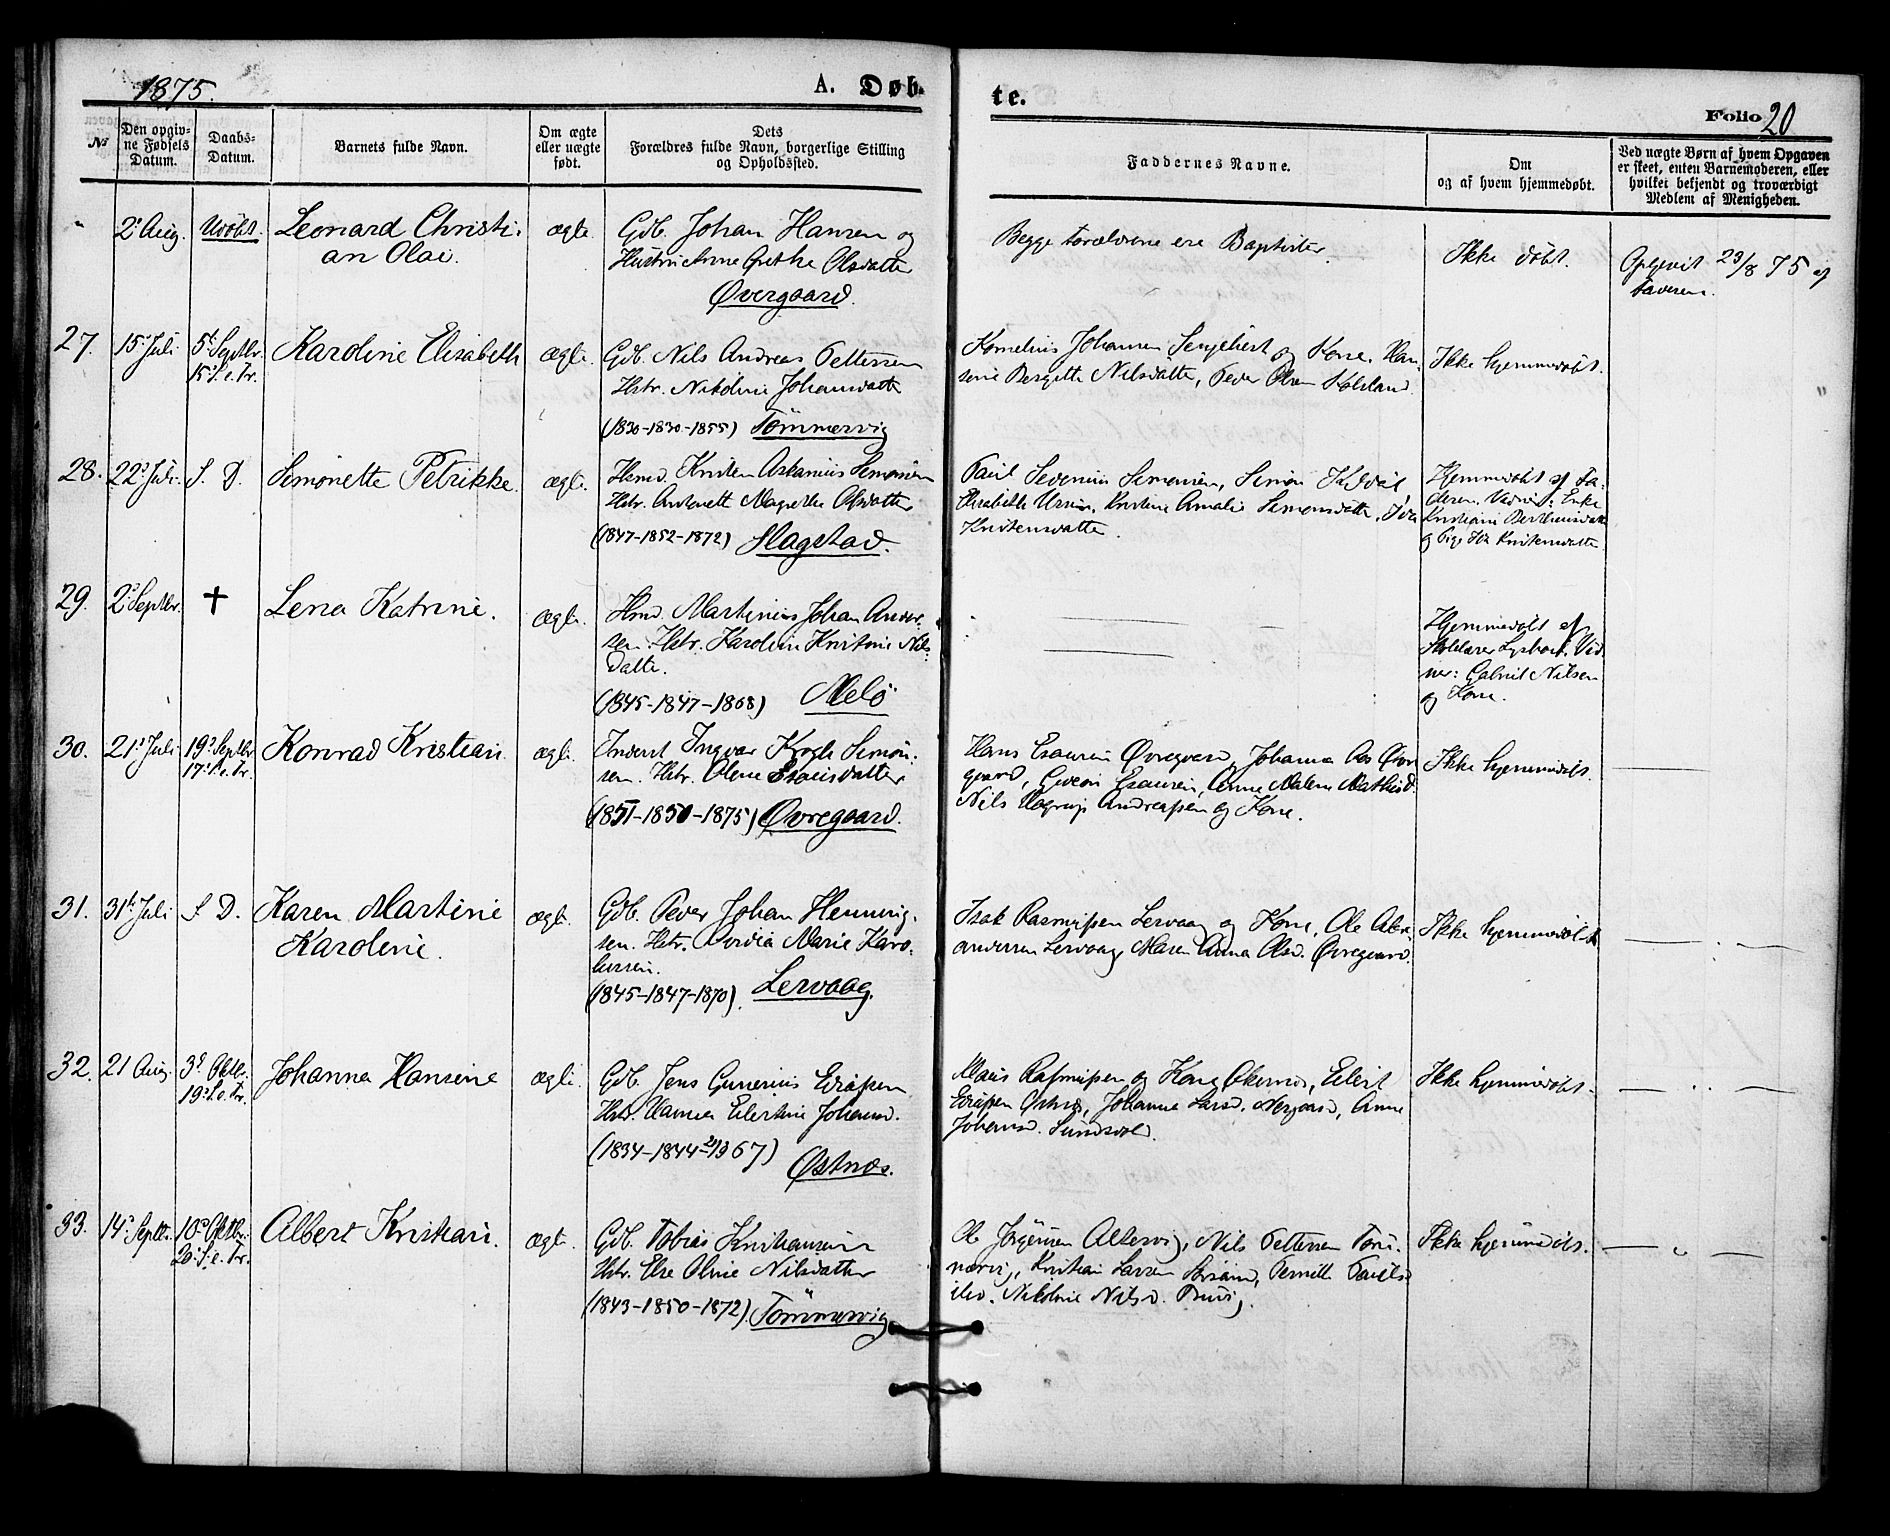 1875.
A. Døb-
te.
Folio 20
№
Den opgiv-
ne Fødsels
Datum.
Daabs-
Datum.
Barnets fulde Navn.
Om ægte
eller uægte
født.
Dets
Forældres fulde Navn, borgerlige Stilling
og Opholdssted.
Faddernes Navne.
Om
og af hvem hjemmedøbt.
Ved uægte Børn af hvem Opgaven
er skeet, enten Barnemoderen, eller
hvilket bekjendt og troværdigt
Medlem af Menigheden.
2. Aug. Udöbt. Leonard Christi-
an Olai.
ægte.
Gdb. Johan Hansen og
Hustru Anne Grethe Olsdatter
Øvergaard.
Begge Forældrene ere Baptister.
Ikke döbt.
Opgivet 23/8 75 af
Faderen.
27. 15. Juli 5. Septbr.
15. S. e. Tr.
Karoline Elisabeth
ægte.
Gdb. Nils Andreas Pettersen
Hstr. Nikoline Johansdatter
(1830-1830-1855) Tömmervig
Kornelius Johansen og Kone, Han-
sine Bergitte Nilsdatter, Peder Olsen
Ikke hjemmedöbt.
28. 22. Juli. S. D. Simonette Petrikke.
ægte.
Hsmd. Kristen Askanius Simonsen
Hstr. Antonett Magrethe Olsdatter
(1847-1852-1872) Slagstad.
Paul Severinus Simonsen, Simon
Elisabeth Kristine Amalie Simonsdatter, Ida
Kristensdatter.
Hjemmedöbt af Fa-
deren. Vidner: Enke
Kristiane Berthinusdatter
og Pige Ida Kristensdatter.
29. 2. Septbr. † Lena Katrine.
ægte.
Hsmd. Martinius Johan Ander-
sen. Hstr. Karoline Kristine Nils-
datter.
(1845-1847-1868) Melö
Hjemmedöbt af
Vid-
ner: Gabriel Nilsen
og Kone.
30. 21. Juli 19. Septbr.
17. S. e. Tr.
Konrad Kristian.
ægte.
Inderst Ingvar Krogh Simon-
sen. Hstr. Oline Esauisdatter
(1851-1850-1875) Øvregaard.
Hans Esausen Øvregaard, Johanna Øvre-
gaard, Gideon Esausen, Anne Malene Mathisd.
Nils Hagrup Andreassen og Kone.
Ikke hjemmedöbt.
31. 31. Juli S. D. Karen Martine
Karoline.
ægte.
Gdb. Peder Johan Henning-
sen. Hstr. Marie Karo-
liussen.
(1845-1847-1870). Lervaag.
Isak Rasmussen Lervaag og Kone, Ole Alex-
andersen Lervaag, Maren Anna Olsd. Øvregaard.
Ikke hjemmedöbt
32. 21 Aug. 3. Oktbr.
19. S. e. Tr.
Johanna Hansine
ægte.
Gdb. Jens Gunerius Eriksen
Hstr. Hanna Eilertine Johansd.
(1834-1844-2/1867) Østnæs.
Rasmussen og Kone Eilert
Østnæs, Johanna Larsd. Nergaard, Anne
Johansd. Sundsvold.
Ikke hjemmedöbt.
33. 14. Septbr. 10. Oktbr.
20. S. e. Tr.
Albert Kristian.
ægte.
Gdb. Tobias Kristiansen
Hstr. Else Oline Nilsdatter
(1843-1850-1872). Tömmervig
Ole Jörgensen Allervig, Nils Pettersen Töm-
mervig, Kristian Larsen Pernille
Nikoline Nilsd.
Ikke hjemmedöbt.